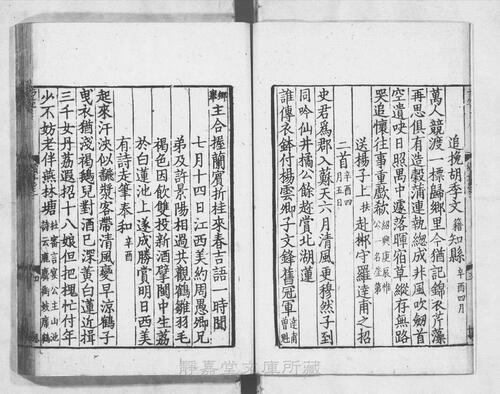 追挽胡季文籍知縣辛酉四月
萬人競渡一標歸鄉里今猶記錦衣芹藻
再思俱有造穀蒲連執總成非風吹劒首
空遺吷日照禺中遽落暉宿草縱存無路
哭追懷往事重歔欷紹興庚辰惟公一名居第
送楊子上赴郴守羅達甫之招
二首辛酉四月五日
史君為郡入蘇天六月清風更穆然子到
同吟仙井橘公餘趁賞北湖蓮
誰傳衣鉢付楊雲鄉子文鋒舊冠軍達甫曾魁
鄉舉主合握蘭賓折桂來春吉語一時聞
七月十四日江西美約周愚卿兄
弟及許景陽相過共觀鶴雛羽毛
褐色因飲雙投新酒擘閩中生荔
於白蓮池上遂成勝賞明日西美
有詩走筆奉和辛酉
起來汗浹似醼漿客帶清風變早涼鶴子
曳衣猶淺褐鵝兒對酒已深黃白蓮近揖
三千女丹荔遐招十八娘但把槐忙付年
少不妨老伴燕林塘
靜嘉堂文庫所藏